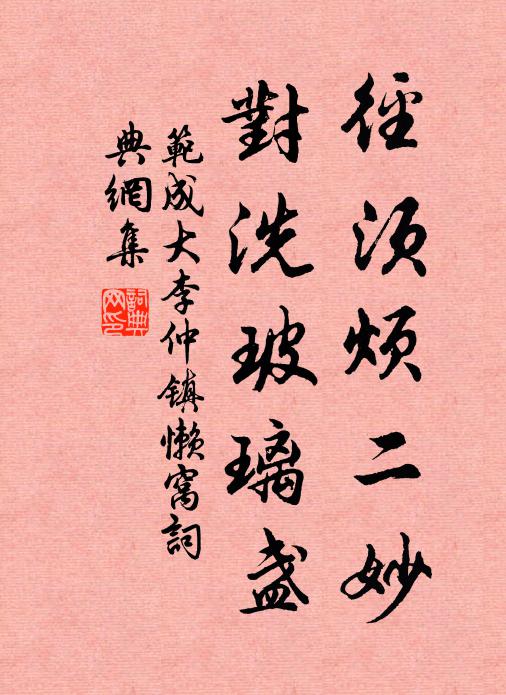 徑須煩二妙
對洗玻璃盞
範成大李仲鎮懶窩詞
典網集
詞典網印